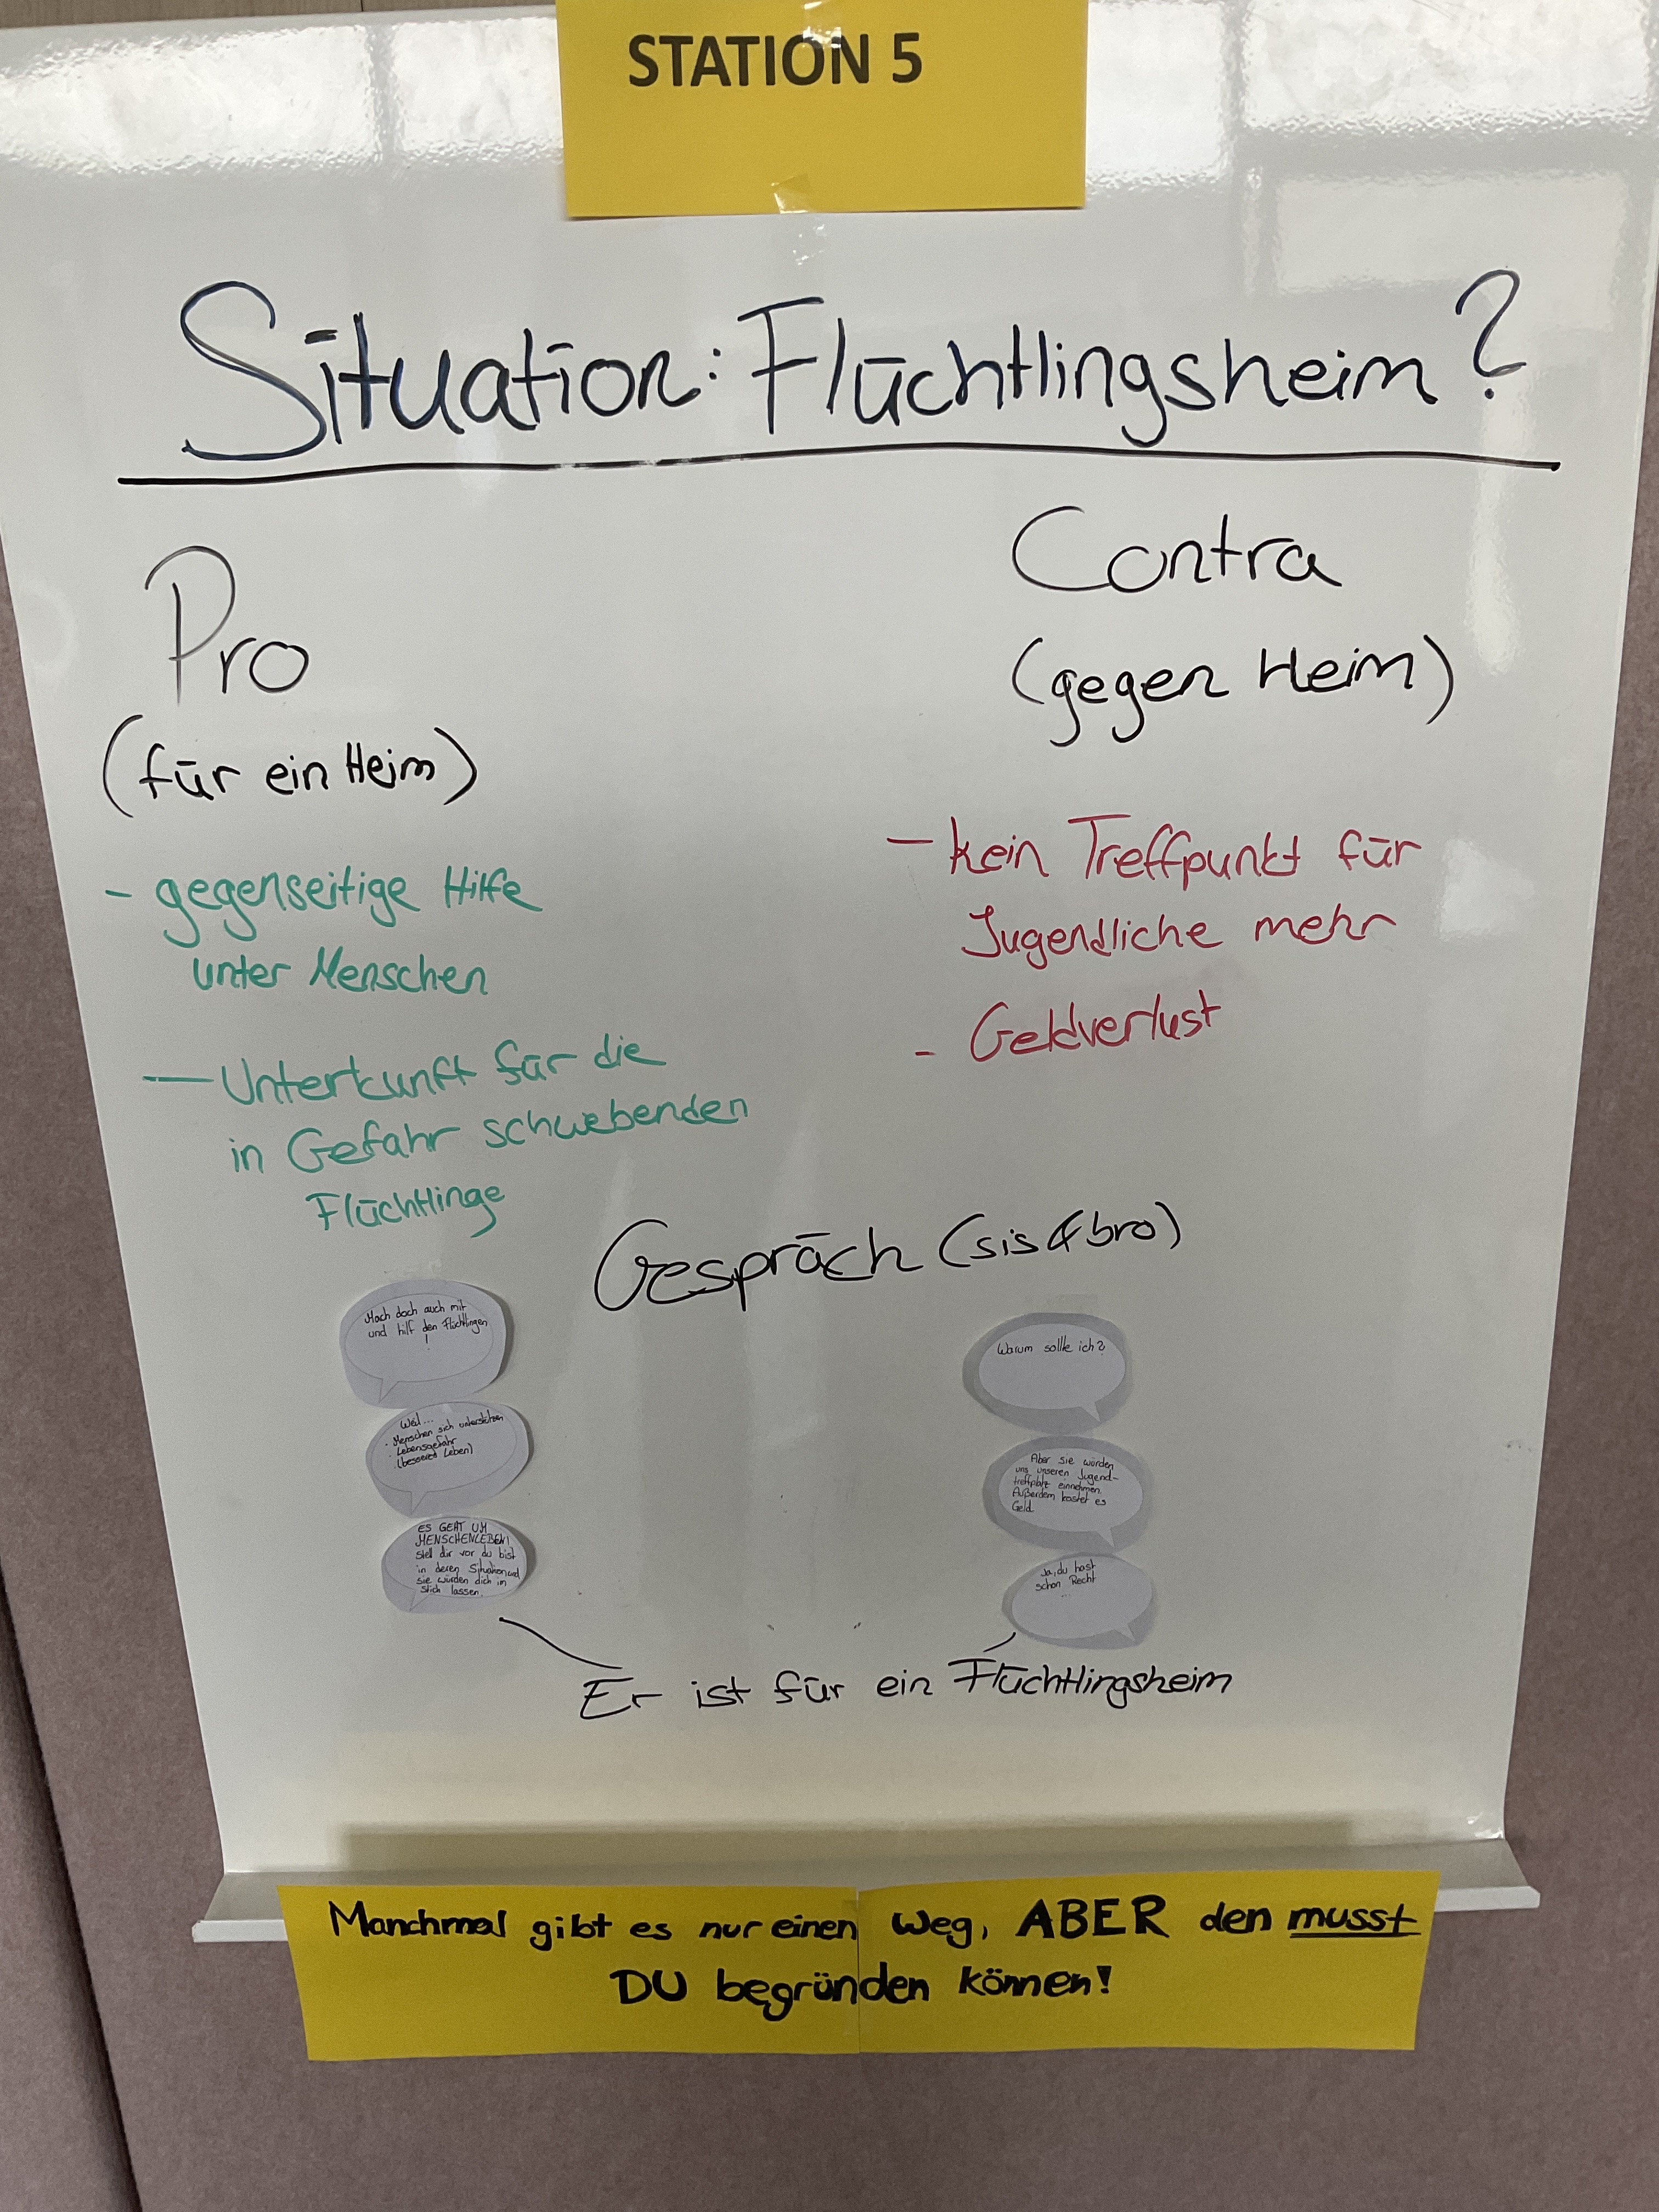 STATION 5
Situation: Flüchtlingsheim?
Pro
(für ein Heim)
- gegenseitige Hilfe
unter Menschen
- Unterkunft für die
in Gefahr schwebenden
Flüchtlinge
Contra
(gegen Heim)
- kein Treffpunkt für
Jugendliche mehr
- Geldverlust
Gespräch (sis & bro)
Mach doch auch mit
und hilf den Flüchtlingen
!
Warum sollte ich?
Weil...
- Menschen sich unterstützen
- Lebensgefahr
- (besseres Leben)
Aber sie würden
uns unseren Jugend-
treffplatz einnehmen.
Außerdem kostet es
Geld.
ES GEHT UM
MENSCHENLEBEN!
stell dir vor du bist
in deren Situation und
sie würden dich im
Stich lassen.
Ja, du hast
schon Recht
...
Er ist für ein Flüchtlingsheim
Manchmal gibt es nur einen Weg, ABER den musst
DU begründen können!